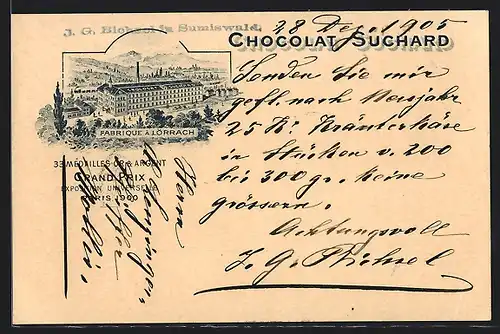 J. G. Bichsel in Sumiswald.
28 Dez. 1905
CHOCOLAT SUCHARD
FABRIQUE À LÖRRACH
33 MEDAILLES OR & ARGENT
GRAND PRIX
EXPOSITION UNIVERSELLE
PARIS 1900
Senden Sie mir
gefl. nach Neujahr
25 K° Kräuterkäse
in Stücken v. 200
bis 300 gr. keine
grössern.
Achtungsvoll
J. G. Bichsel
Herrn